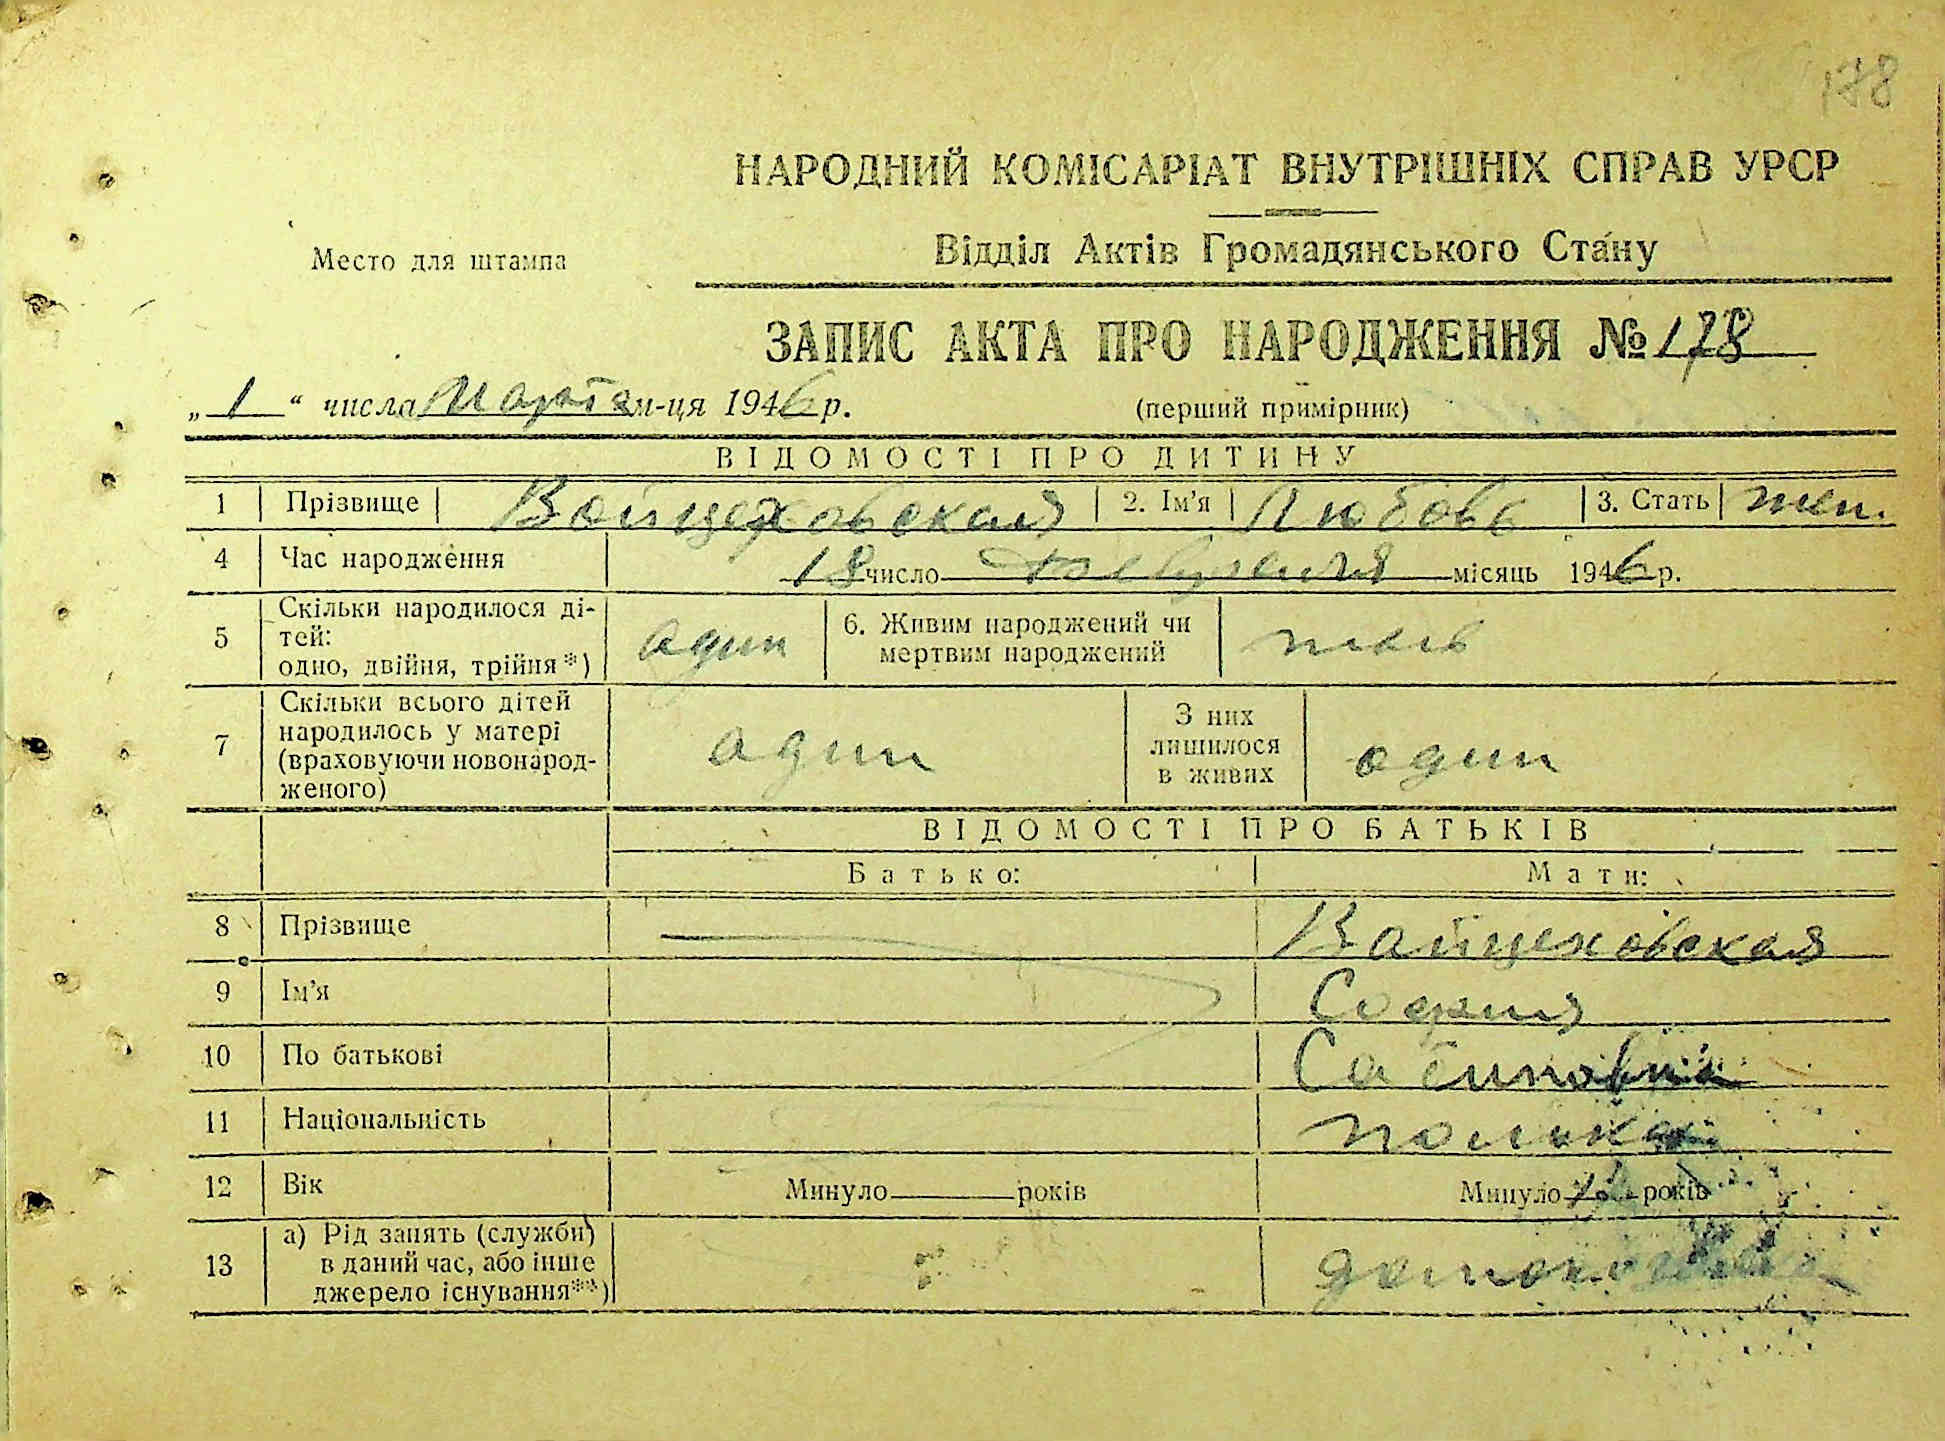 178
НАРОДНИЙ КОМІСАРІАТ ВНУТРІШНІХ СПРАВ УРСР
Место для штампа
Відділ Актів Громадянського Стану
ЗАПИС АКТА ПРО НАРОДЖЕННЯ № 178
„ 1 “ числа Марта м-ця 1946 р.
(перший примірник)
ВІДОМОСТІ ПРО ДИТИНУ
1 Прізвище Войцеховская 2. Ім'я Любовь 3. Стать жен.
4 Час народження 18 число Февраля місяць 1946 р.
5 Скільки народилося ді-
тей:
одно, двійня, трійня*) один
6. Живим народжений чи
мертвим народжений
7 Скільки всього дітей
народилось у матері
(враховуючи новонарод-
женого) один
З них
лишилося
в живих один
ВІДОМОСТІ ПРО БАТЬКІВ
Батько: Мати:
8 Прізвище Войцеховская
9 Ім'я София
10 По батькові
11 Національність полька
12 Вік Минуло років Минуло років
13 а) Рід занять (служби)
в даний час, або інше
джерело існування**)